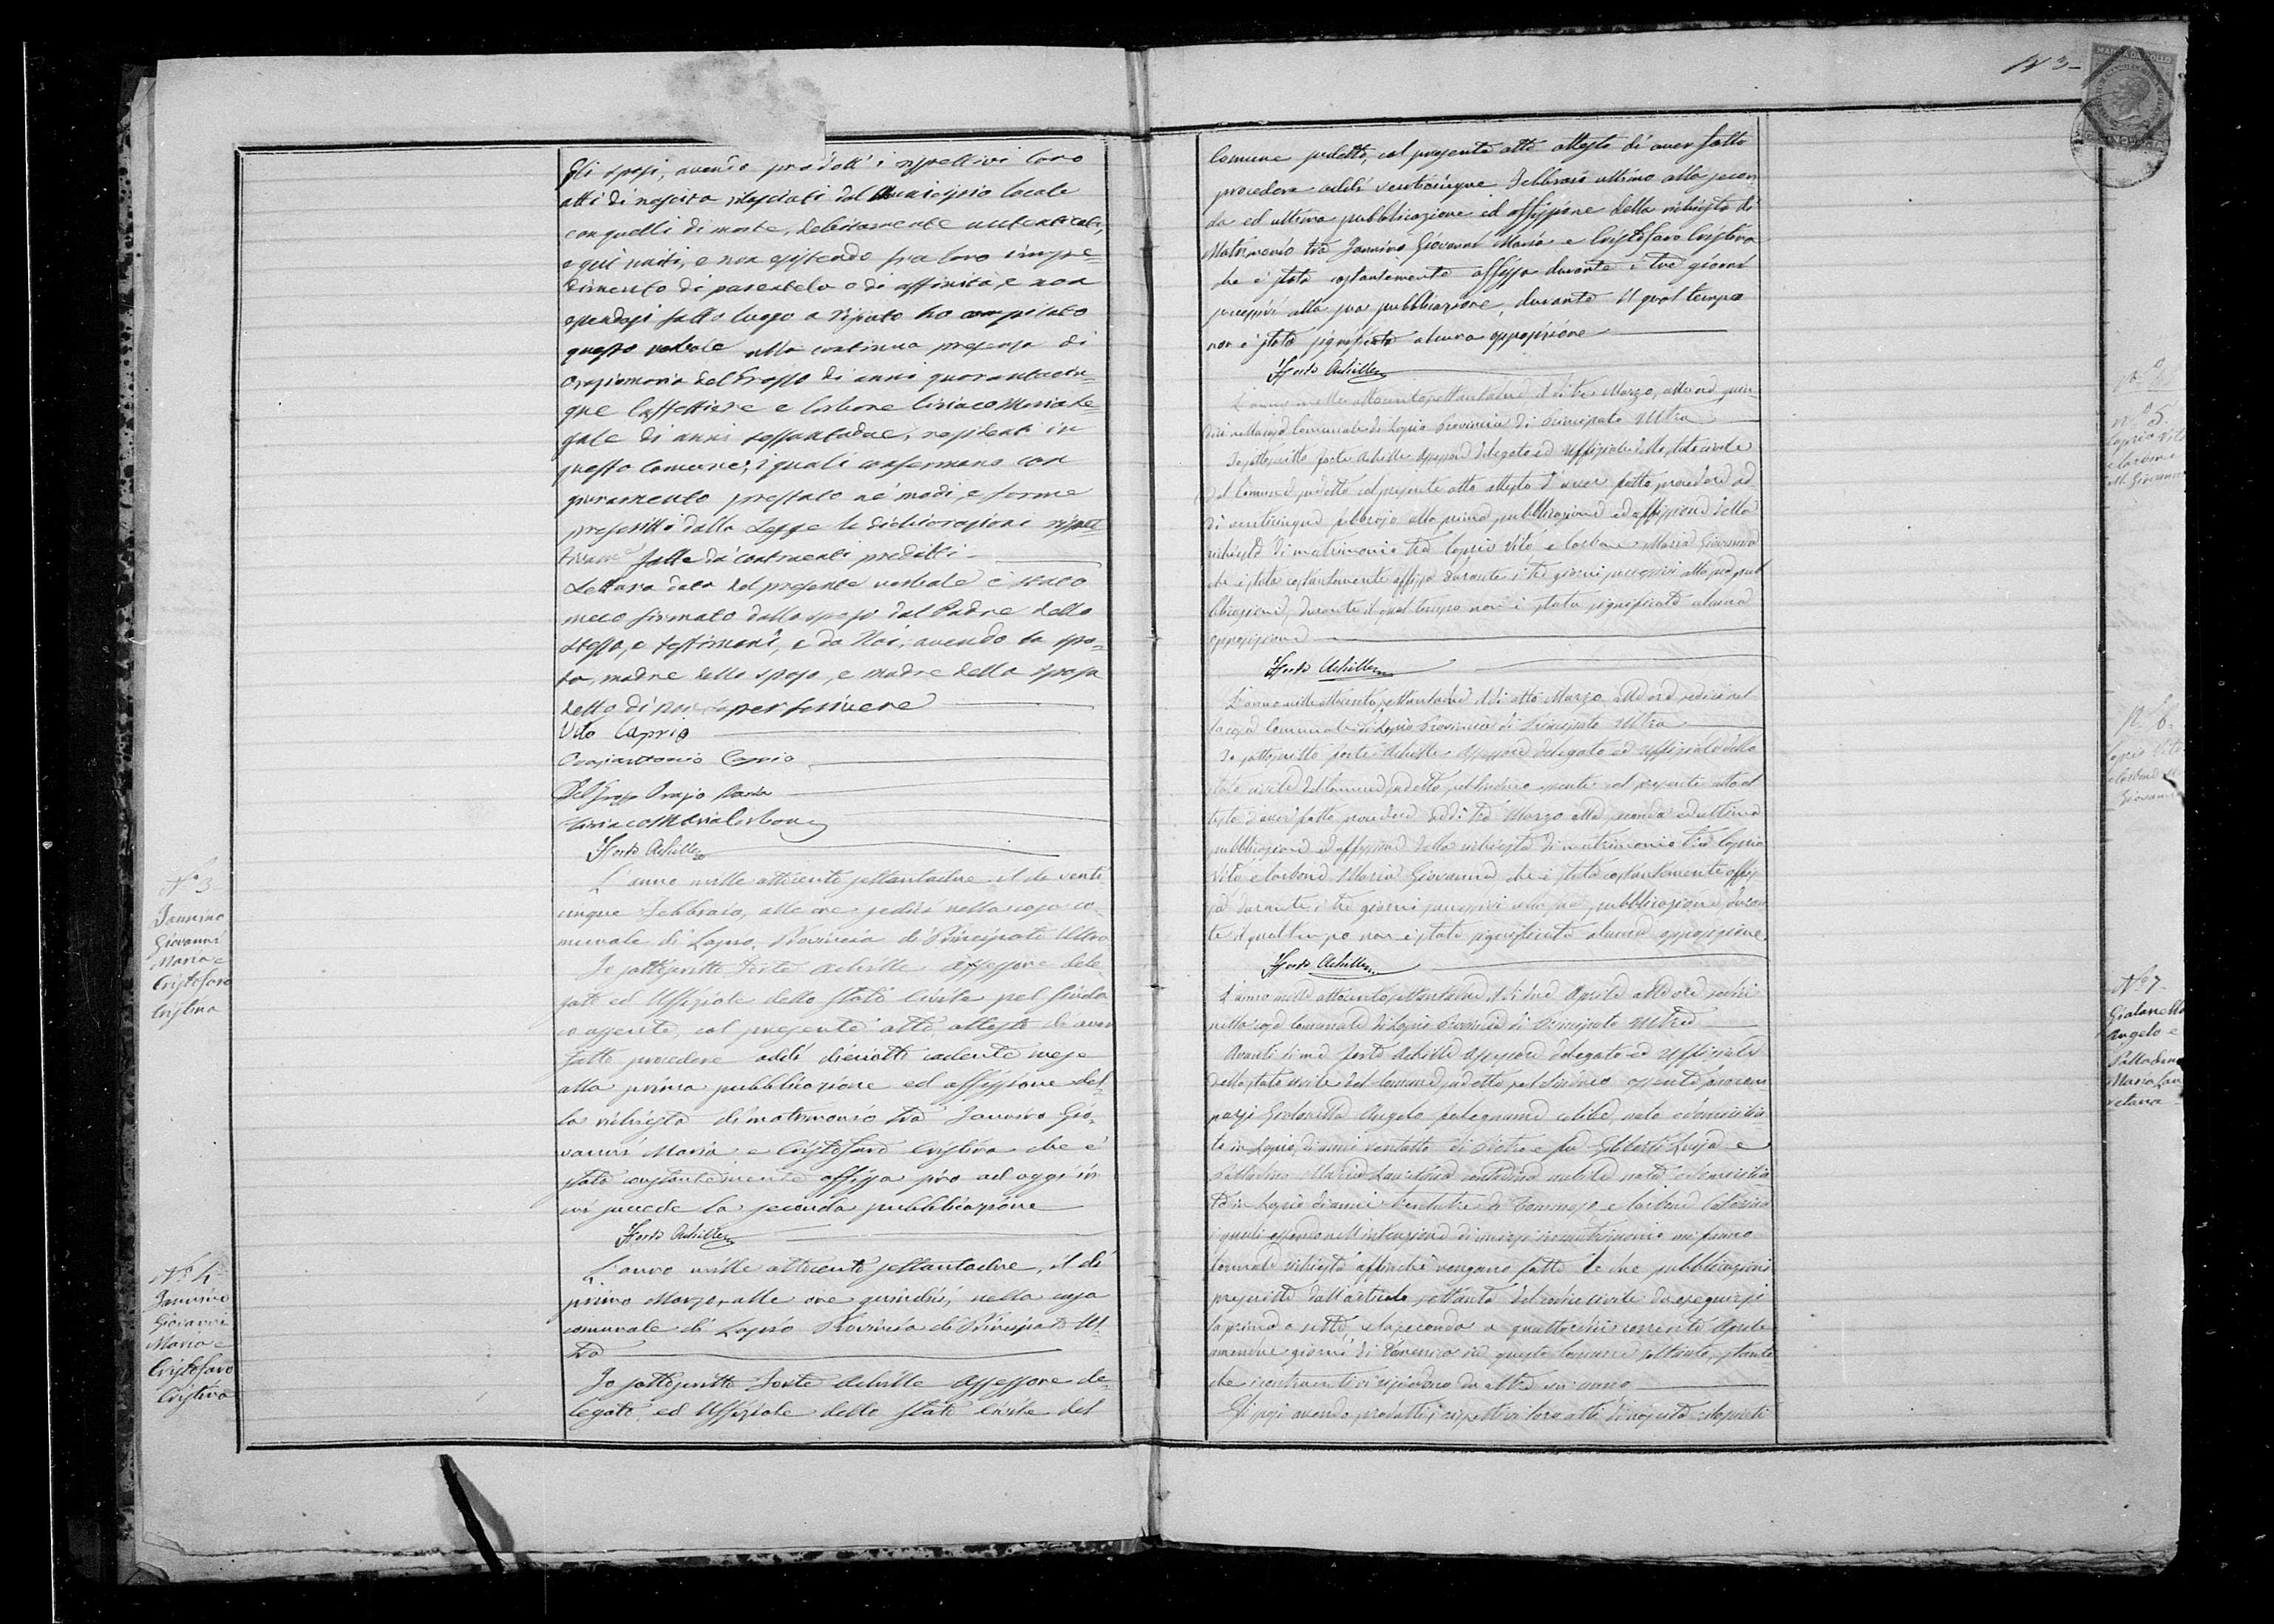 Gli sposi, avendo prodotti i rispettivi loro
atti di nascita rilasciati dal Municipio locale
con quelli di morte, debitamente autenticati,
e qui uniti, e non esistendo fra loro impe=
dimento di parentela o di affinità, e non
essendosi fatto luogo a rifiuto ho compilato
questo verbale alla continua presenza di
Oraziomaria del Grosso di anni quarantacin=
que Caffettiere e Carbone Ciriaco Maria Le=
gale di anni sessantadue, residenti in
questo Comune, i quali confermano con
giuramento prestato ne' modi, e forme
prescritti dalla Legge le dichiarazioni rispet=
tivame fatte da' contraenti predetti.
Lettura data del presente verbale è stato
meco firmato dallo sposo dal Padre dello
stesso, e testimoni, e da Noi, avendo la spo=
sa, madre dello sposo, e madre della sposa
detto di non saper scrivere
Vito Caprio
Oraziantonio Caprio
Del Grosso Orazio Maria
Ciriaco Maria Carbone
Forte Achille
N° 3
Iannino
Giovanni
Maria e
Cristofaro
Cristina
L'anno mille ottocento settantadue il dì venti
cinque Febbraio, alle ore sedici nella casa co=
munale di Lapio, Provincia di Principato Ultra
Io sottoscritto Forte Achille Assessore dele=
gato ed Uffiziale dello Stato Civile pel Sinda
co assente, col presente atto attesto di aver
fatto procedere addì dieciotto cadente mese
alla prima pubblicazione ed affissione del=
la richiesta di matrimonio tra Iannino Gio=
vanni Maria e Cristofaro Cristina che è
stata costantemente affissa sino ad oggi in
cui succede la seconda pubblicazione
Forte Achille
N° 4
Iannino
Giovanni
Maria e
Cristofaro
Cristina
L'anno mille ottocento settantadue, il dì
primo Marzo, alle ore quindici, nella casa
comunale di Lapio Provincia di Principato Ul=
tra
Io sottoscritto Forte Achille Assessore de=
legato, ed Uffiziale dello Stato Civile del
N 3
Comune suddetto, col presente atto attesto di aver fatto
procedere addì venticinque Febbraio ultimo alla secon=
da ed ultima pubblicazione ed affissione della richiesta di
Matrimonio tra Iannino Giovanni Maria e Cristofaro Cristina
che è stata costantemente affissa durante i tre giorni
successivi alla sua pubblicazione, durante il qual tempo
non è stata significata alcuna opposizione
Forte Achille
N° 5.
Caprio Vito
e Carbone
M. Giovanna
L'anno mille ottocento settantadue il dì tre Marzo, alle ore quin=
dici nella casa Comunale di Lapio Provincia di Principato Ultra
Io sottoscritto Forte Achille Assessore delegato ed Uffiziale dello stato civile
del Comune suddetto col presente atto attesto d'aver fatto procedere ad
dì venticinque febbrajo alla prima pubblicazione ed affissione della
richiesta di matrimonio tra Caprio Vito, e Carbone Maria Giovanna
che è stata costantemente affissa durante i tre giorni successivi alla sua pub
blicazione, durante il qual tempo non è stata significata alcuna
opposizione
Forte Achille
N° 6.
Caprio Vito
e Carbone M.
Giovanna
L'anno mille ottocento settantadue il dì otto Marzo alle ore sedici nel
la casa Comunale di Lapio Provincia di Principato Ultra
Io sottoscritto Forte Achille Assessore delegato ed Uffiziale dello
stato civile del Comune suddetto pel Sindaco assente col presente atto at
testo d'aver fatto procedere addì tre Marzo alla seconda ed ultima
pubblicazione ed affissione della richiesta di matrimonio tra Caprio
Vito e Carbone Maria Giovanna che è stata costantemente affis
sa durante i tre giorni successivi alla sua pubblicazione, duran
te il qual tempo non è stata significata alcuna opposizione.
Forte Achille
N° 7
Gialanella
Angelo e
Palladino
Maria Lau
retana
L'anno mille ottocento settantadue il dì due Aprile alle ore sedici
nella casa Comunale di Lapio Provincia di Principato Ultra
Avanti di me Forte Achille Assessore delegato ed Uffiziale
dello stato civile del Comune suddetto pel Sindaco assente sono com
parsi Gialanella Angelo falegname celibe, nato e domicilia
to in Lapio, di anni ventotto di Pietro e fu Giliberti Luisa e
Palladino Maria Lauretana contadina nubile nata e domicilia
ta in Lapio di anni ventitre di Tommaso e Carbone Caterina
i quali essendo nell'intenzione di unirsi in matrimonio mi fanno
formale richiesta affinchè vengano fatte le due pubblicazioni
prescritte dall'articolo settanta del codice civile da eseguirsi
la prima a sette, e la seconda a quattordici corrente Aprile
amendue giorni di Domenica in questo Comune soltanto, stante
che i contraenti vi risiedono da oltre un anno
Gli sposi avendo prodotti i rispettivi loro atti di nascita rilasciati